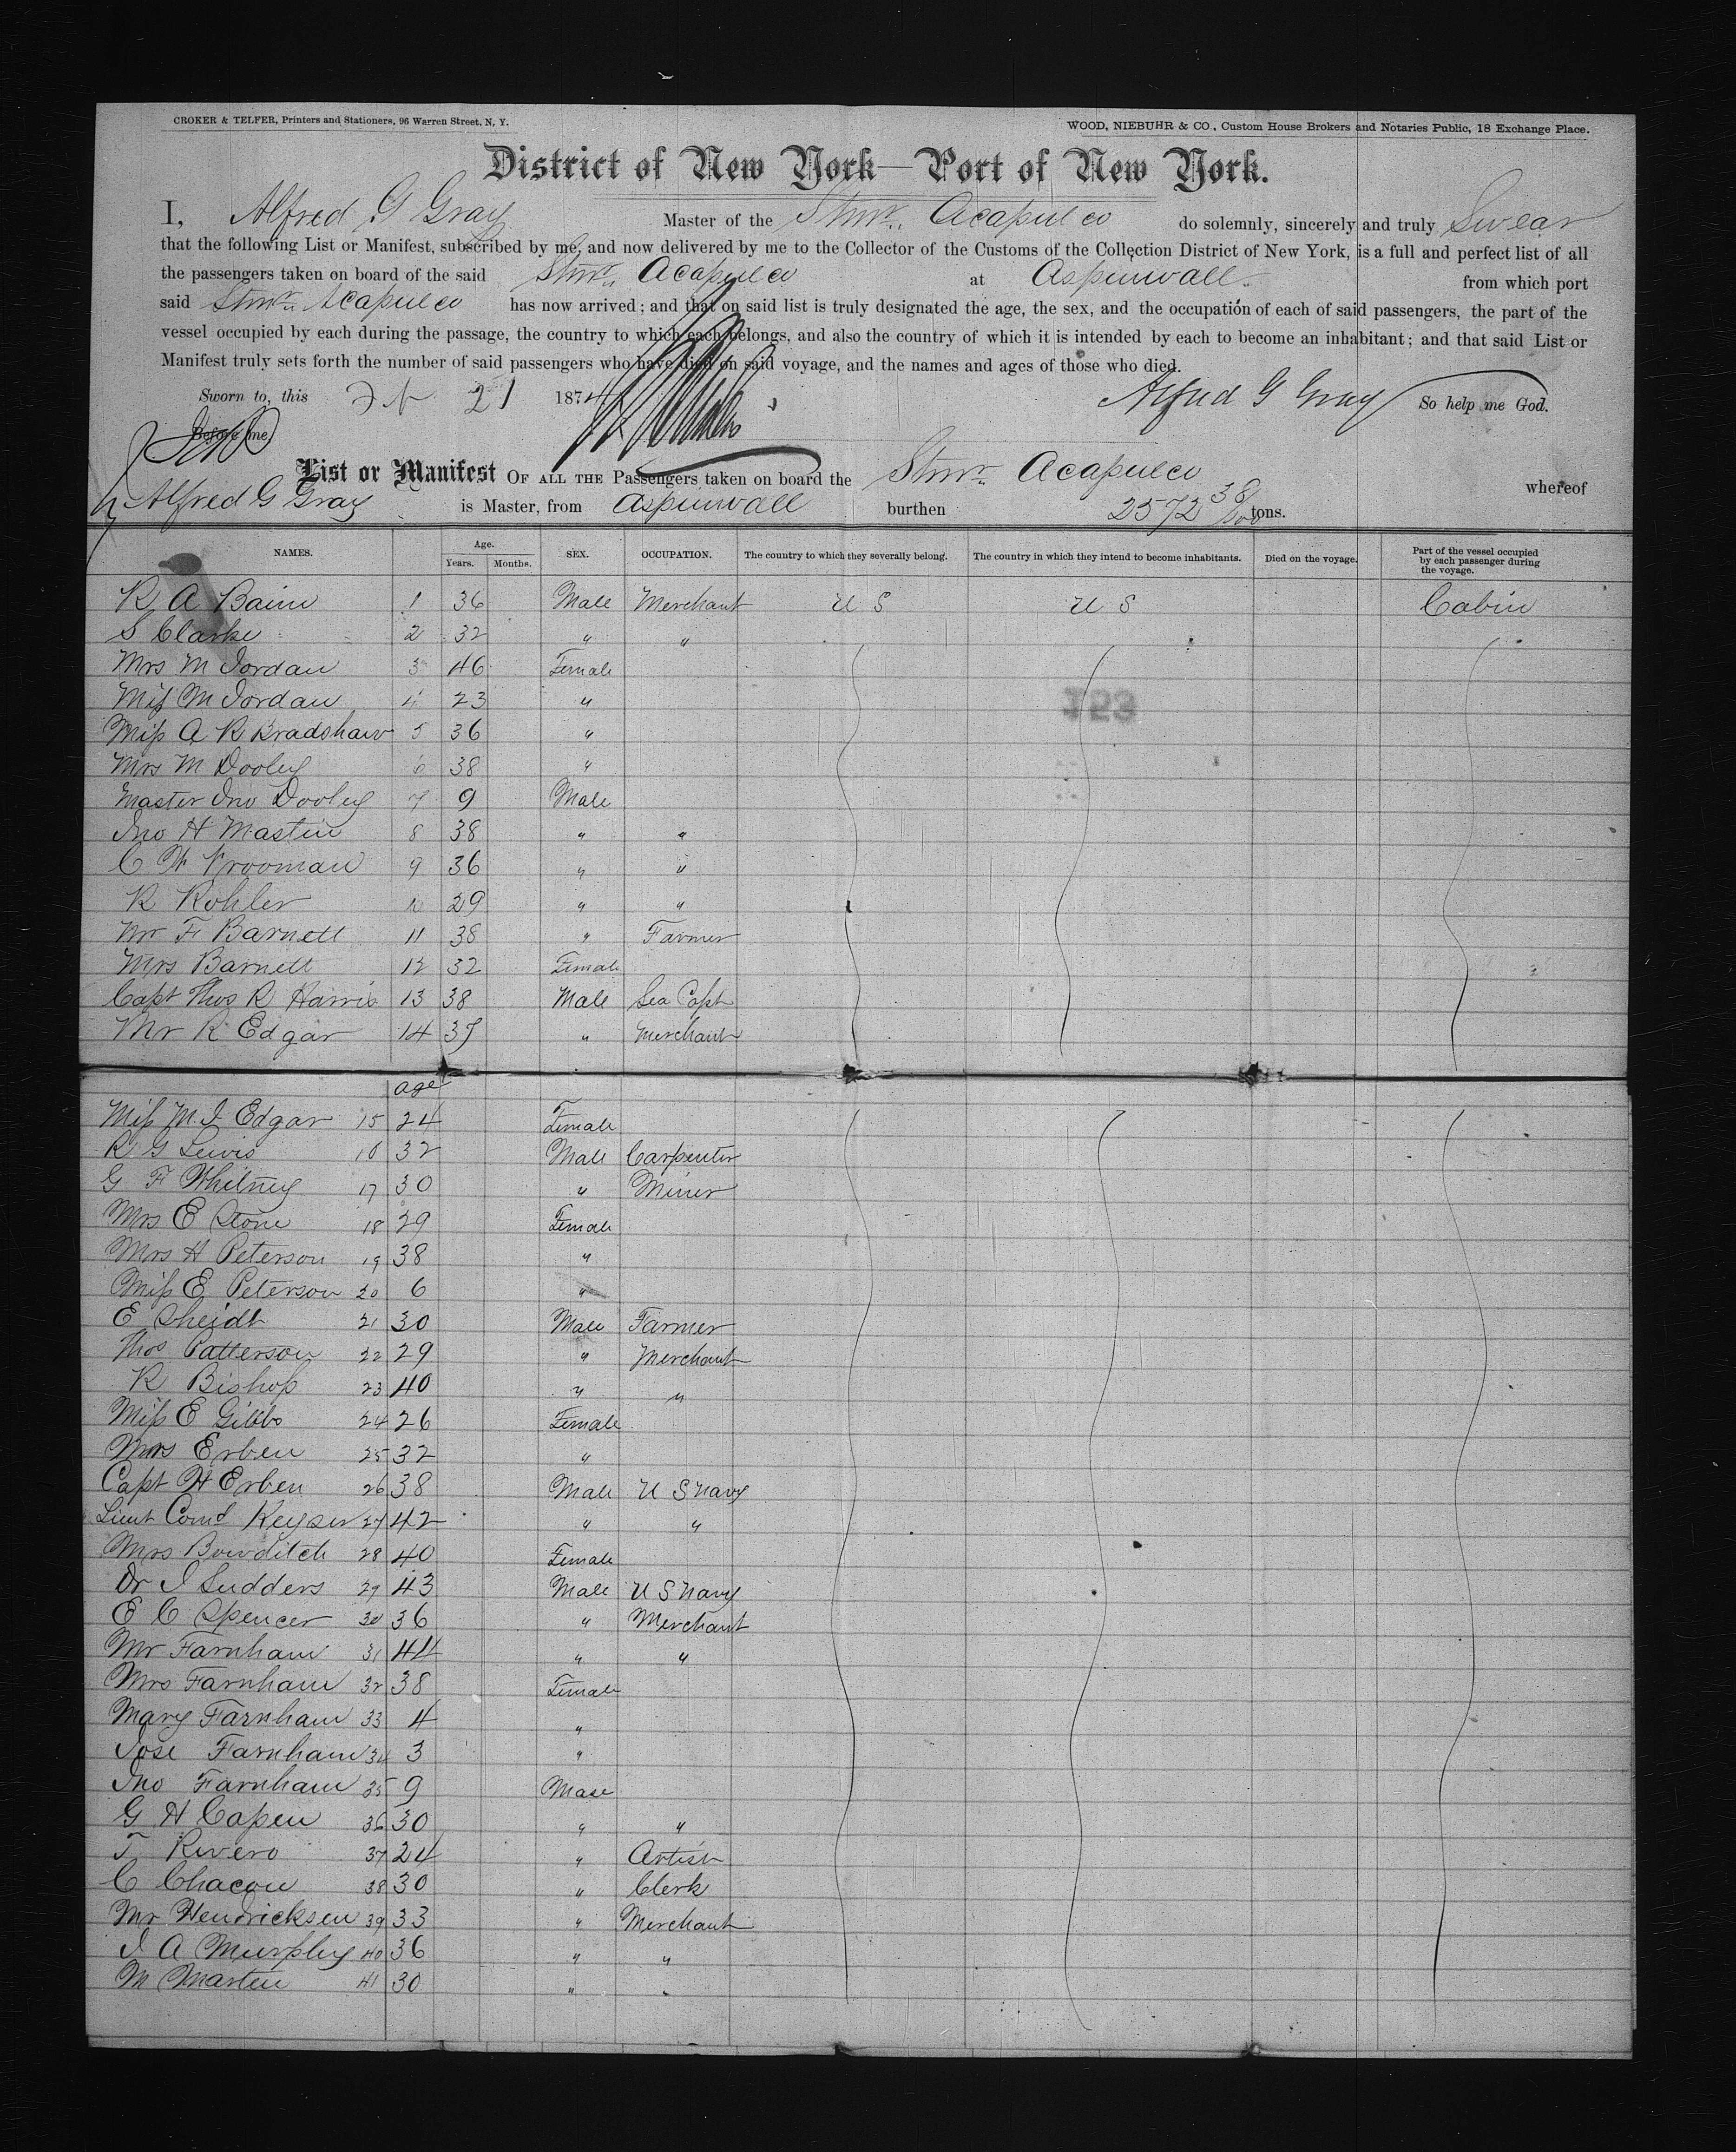 CROKER & TELFER, Printers and Stationers, 96 Warren Street, N. Y.
WOOD, NIEBUHR & CO., Custom House Brokers and Notaries Public, 18 Exchange Place.
District of New York—Port of New York.
I, Alfred G Gray Master of the Stmr. Acapulco do solemnly, sincerely and truly Swear
that the following List or Manifest, subscribed by me, and now delivered by me to the Collector of the Customs of the Collection District of New York, is a full and perfect list of all
the passengers taken on board of the said Stmr. Acapulco at Aspinwall. from which port
said Stmr. Acapulco has now arrived; and that on said list is truly designated the age, the sex, and the occupation of each of said passengers, the part of the
vessel occupied by each during the passage, the country to which each belongs, and also the country of which it is intended by each to become an inhabitant; and that said List or
Manifest truly sets forth the number of said passengers who have died on said voyage, and the names and ages of those who died.
Sworn to, this 21 1874 Alfred G Gray So help me God.
Before me,
List or Manifest OF ALL THE Passengers taken on board the Stmr. Acapulco whereof
Alfred G Gray is Master, from Aspinwall burthen 2572 38/100 tons.
NAMES. Age. Years. Months. SEX. OCCUPATION. The country to which they severally belong. The country in which they intend to become inhabitants. Died on the voyage. Part of the vessel occupied by each passenger during the voyage.
R A Bain 1 36 Male Merchant U S U S Cabin
S Clarke 2 32 " "
Mrs M Jordan 3 46 Female
Miss M Jordan 4 23 "
Miss A R Bradshaw 5 36 "
Mrs M Dooley 6 38 "
Master Jno Dooley 7 9 Male
Jno H Mastin 8 38 " "
C W Vrooman 9 36 " "
R Kohler 10 29 " "
Mr F Barnett 11 38 " Farmer
Mrs Barnett 12 32 Female
Capt Thos R Harris 13 38 Male Sea Capt
Mr R Edgar 14 35 " Merchant
153
age
Miss M. J Edgar 15 24 Female
R G Lewis 16 32 Male Carpenter
G F Whitney 17 30 " Miner
Mrs E Stone 18 29 Female
Mrs H Peterson 19 38 "
Miss E Peterson 20 6 "
E Sheidt 21 30 Male Farmer
Thos Patterson 22 29 " Merchant
R Bishop 23 40 " "
Miss E Gibbs 24 26 Female
Mrs Erben 25 32 "
Capt H Erben 26 38 Male U S Navy
Lieut Comd Keyser 27 42 " "
Mrs Bowditch 28 40 Female
Dr J Sudders 29 43 Male U S Navy
E C Spencer 30 36 " Merchant
Mr Farnham 31 44 " "
Mrs Farnham 32 38 Female
Mary Farnham 33 4 "
Jose Farnham 34 3 "
Jno Farnham 35 9 Male
G H Capen 36 30 " "
T. Rivero 37 24 " Artist
C Chacon 38 30 " Clerk
Mr Hendricksen 39 33 " Merchant
J A Murphy 40 36 " "
M Martin 41 30 " "